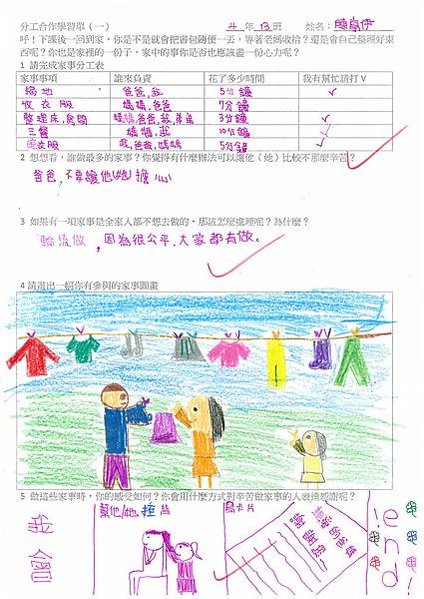 分工合作學習單（一） 4 年 13 班 姓名：
呼！下課後一回到家，你是不是就會把書包隨便一丟，等著老媽收拾？還是會自己整理好東
西呢？你也是家裡的一份子，家中的事你是否也應該盡一份心力呢？
1 請完成家事分工表
家事事項 誰來負責 花了多少時間 我有幫忙請打 V
掃地 爸爸,我 5分鐘 ✓
收衣服 媽媽,爸爸 7分鐘
整理床,房間 媽媽,爸爸,我,弟弟 3分鐘 ✓
三餐 媽媽,我 10分鐘 ✓
晒衣服 我,爸爸,媽媽 5分鐘 ✓
2 想想看，誰做最多的家事？你覺得有什麼辦法可以讓他（她）比較不那麼辛苦？
爸爸,不要讓他(她)擔心
3 如果有一項家事是全家人都不想去做的，那該怎麼處理呢？為什麼？
輪流做，因為很公平.大家都有做。
4 請畫出一幅你有參與的家事圖畫
5 做這些家事時，你的感受如何？你會用什麼方式對辛苦做家事的人表達感謝呢？
我會
幫他/她捶背
寫卡片
親愛的爸媽
謝謝您
end!